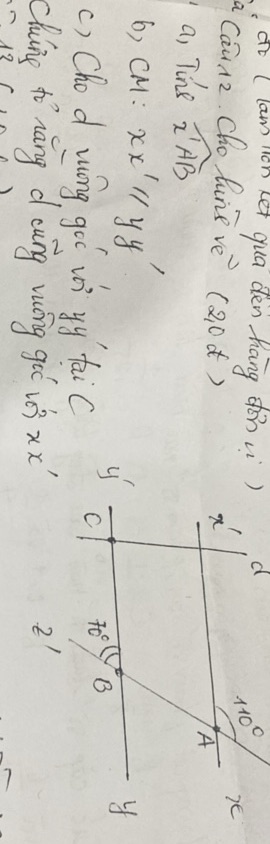 (làm tròn kết quả đến hàng đơn vị)
Câu 12. Cho hình vẽ (2,0 đ)
a, Tính x'AB
b, CM: xx' // yy'
c, Cho d vuông góc với yy' tại C
Chứng tỏ rằng d cũng vuông góc với xx'
d
x'
110°
A
x
y'
C
70°
B
y
z'